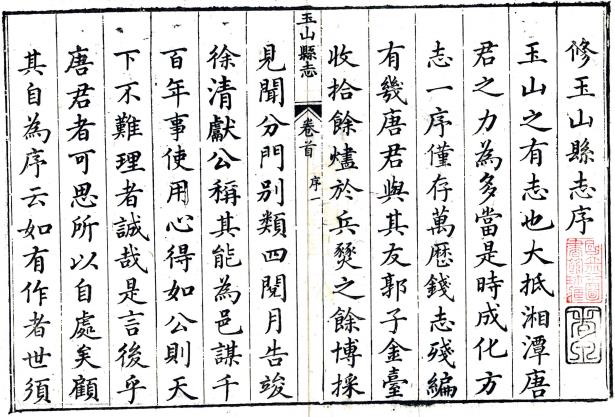 修玉山縣志序
玉山之有志也大抵湘潭唐
君之力為多當是時成化方
志一序僅存萬歷錢志殘編
有幾唐君與其友郭子金臺
收拾餘燼於兵燹之餘博採
玉山縣志
卷首
序一
見聞分門別類四閱月告竣
徐清獻公稱其能為邑謀千
百年事使用心得如公則天
下不難理者誠哉是言後乎
唐君者可思所以自處矣顧
其自為序云如有作者世須